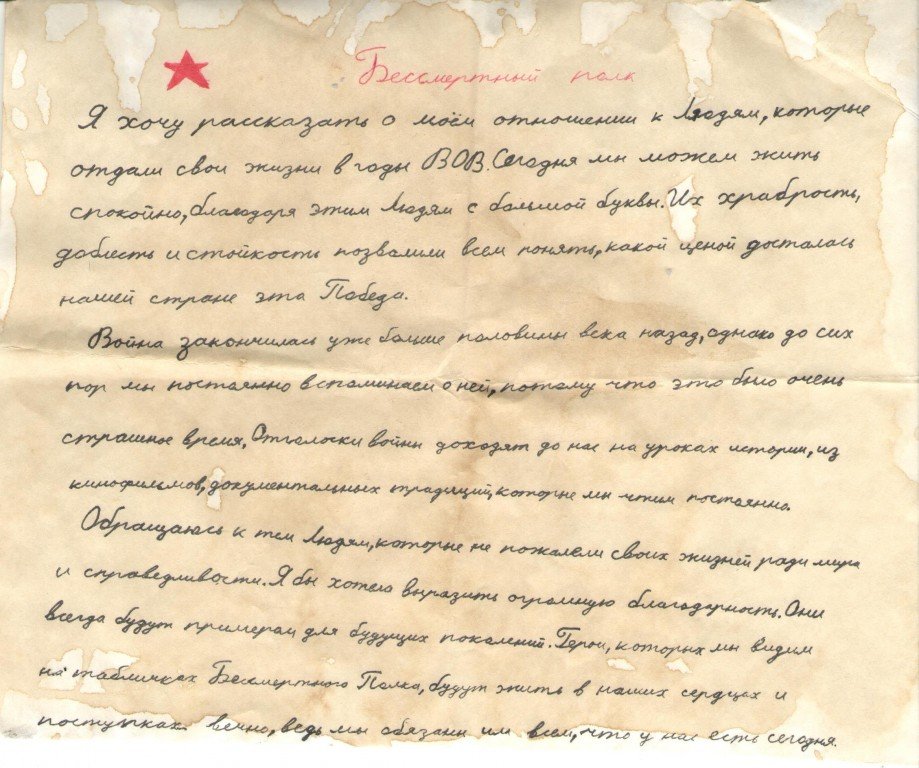 Бессмертный полк
Я хочу рассказать о моём отношении к Людям, которые
отдали свои жизни в годы ВОВ. Сегодня мы можем жить
спокойно, благодаря этим Людям с большой буквы. Их храбрость,
доблесть и стойкость позволили всем понять, какой ценой досталась
нашей стране эта Победа.
Война закончилась уже больше половины века назад, однако до сих
пор мы постоянно вспоминаем о ней, потому что это было очень
страшное время. Отголоски войны доходят до нас на уроках истории, из
кинофильмов, документальных традиций, которые мы чтим постоянно.
Обращаюсь к тем Людям, которые не пожалели своих жизней ради мира
и справедливости. Я бы хотела выразить огромную благодарность. Они
всегда будут примером для будущих поколений. Герои, которых мы видим
на табличках Бессмертного Полка, будут жить в наших сердцах и
поступках вечно, ведь мы обязаны им всем, что у нас есть сегодня.